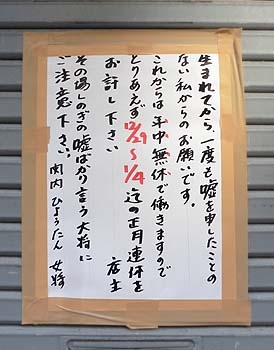 生まれてから、一度も嘘を申したことの
ない私からのお願いです。
これからは年中無休で働きますので
とりあえず12/29〜1/4迄の正月連休を
お許し下さい　店主
その場しのぎの嘘ばかり言う大将に
ご注意下さい。関内 ひょうたん 女将